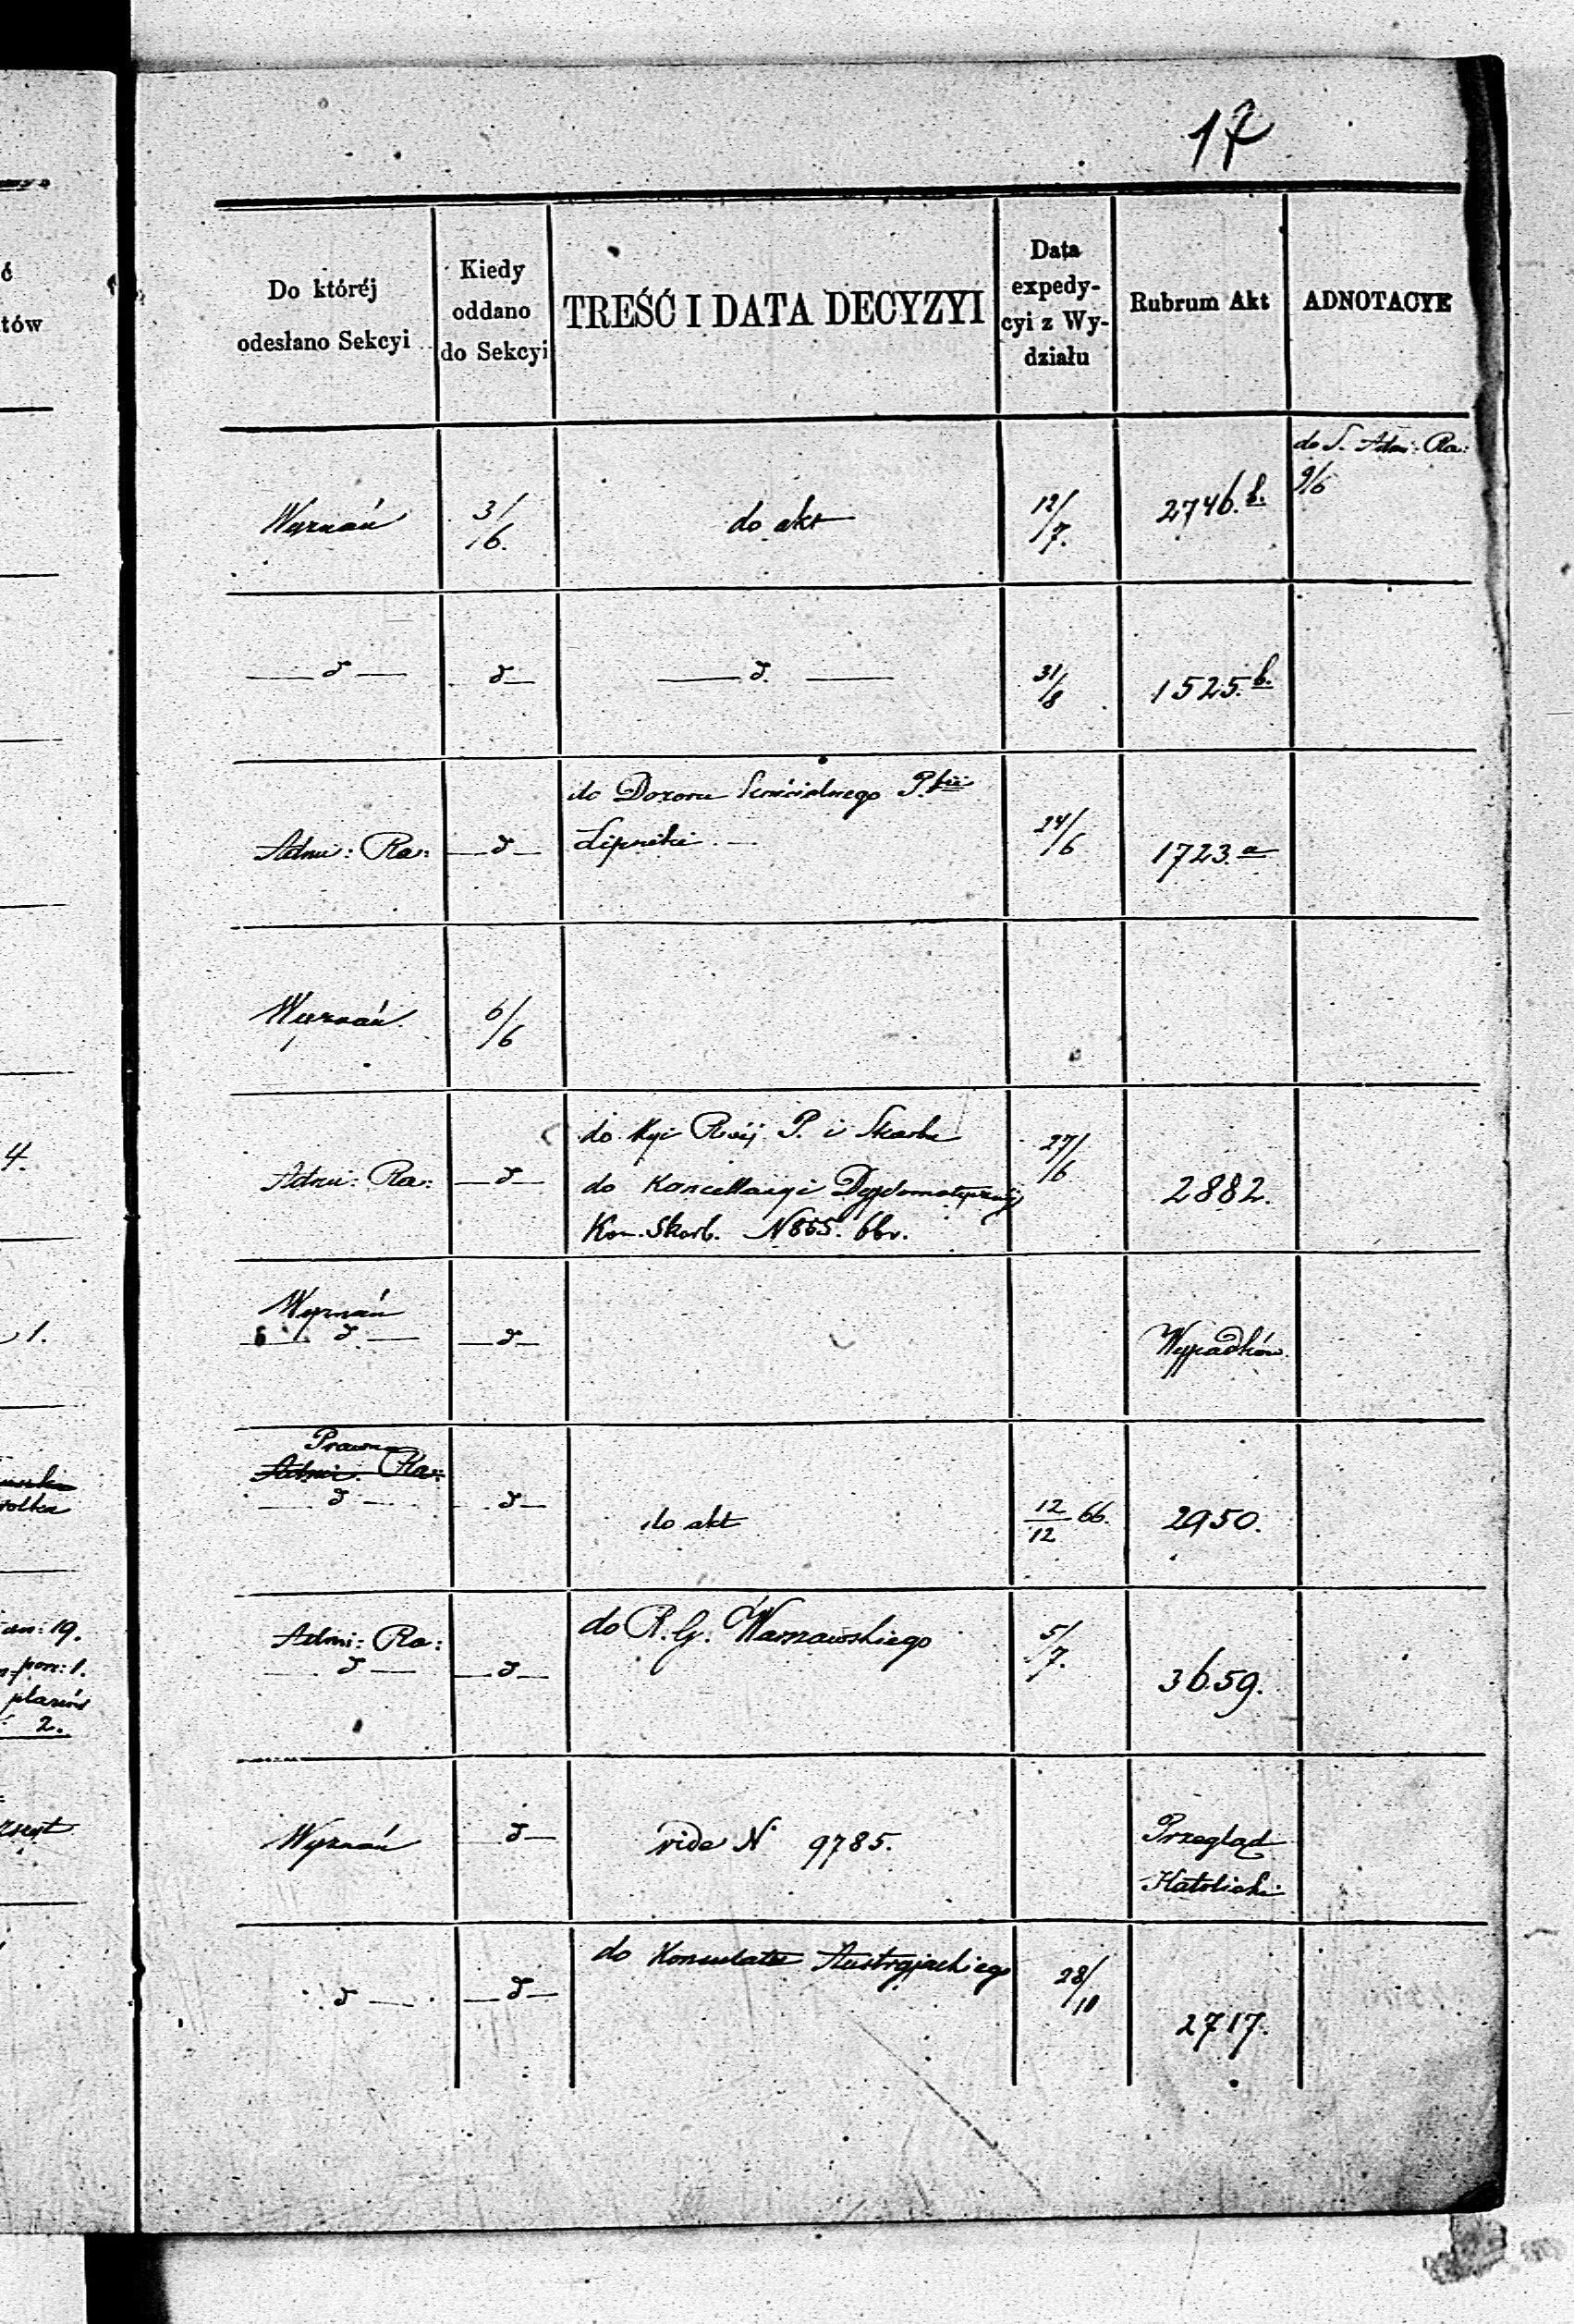 17
Do któréj odesłano Sekcyi
Kiedy oddano do Sekcyi
TREŚĆ I DATA DECYZYI
Data expedycyi z Wydziału
Rubrum Akt
ADNOTACYE
Wyznań 3/6. do akt 12/7. 2746.b. do S. Adm: Ra: 9/6
d d d. 31/8 1525.b.
do Dozoru
Adm: Ra: d Lipniki 24/6 1723.a
Wyznań 6/6
do Kyi Rząj P. i Skarbu 27/6
Adm: Ra: d do Kancellaryi Dyplomatycznéj 2882.
Kom. Skarb. N 865. 66r.
Wyznań
d d Wypadków
Prawna
Adm: Ra:
d d do akt 12/12 66. 2950.
Admi: Ra: do R. G. Warszawskiego 5/7.
d d 3659.
Wyznań d vide N 9785. Przegląd
Katolicki
do Konsulatu Austryjackiego
d d 28/10 2717.
4.
1.
an: 19.
por: 1.
planów
2.
ć
tów